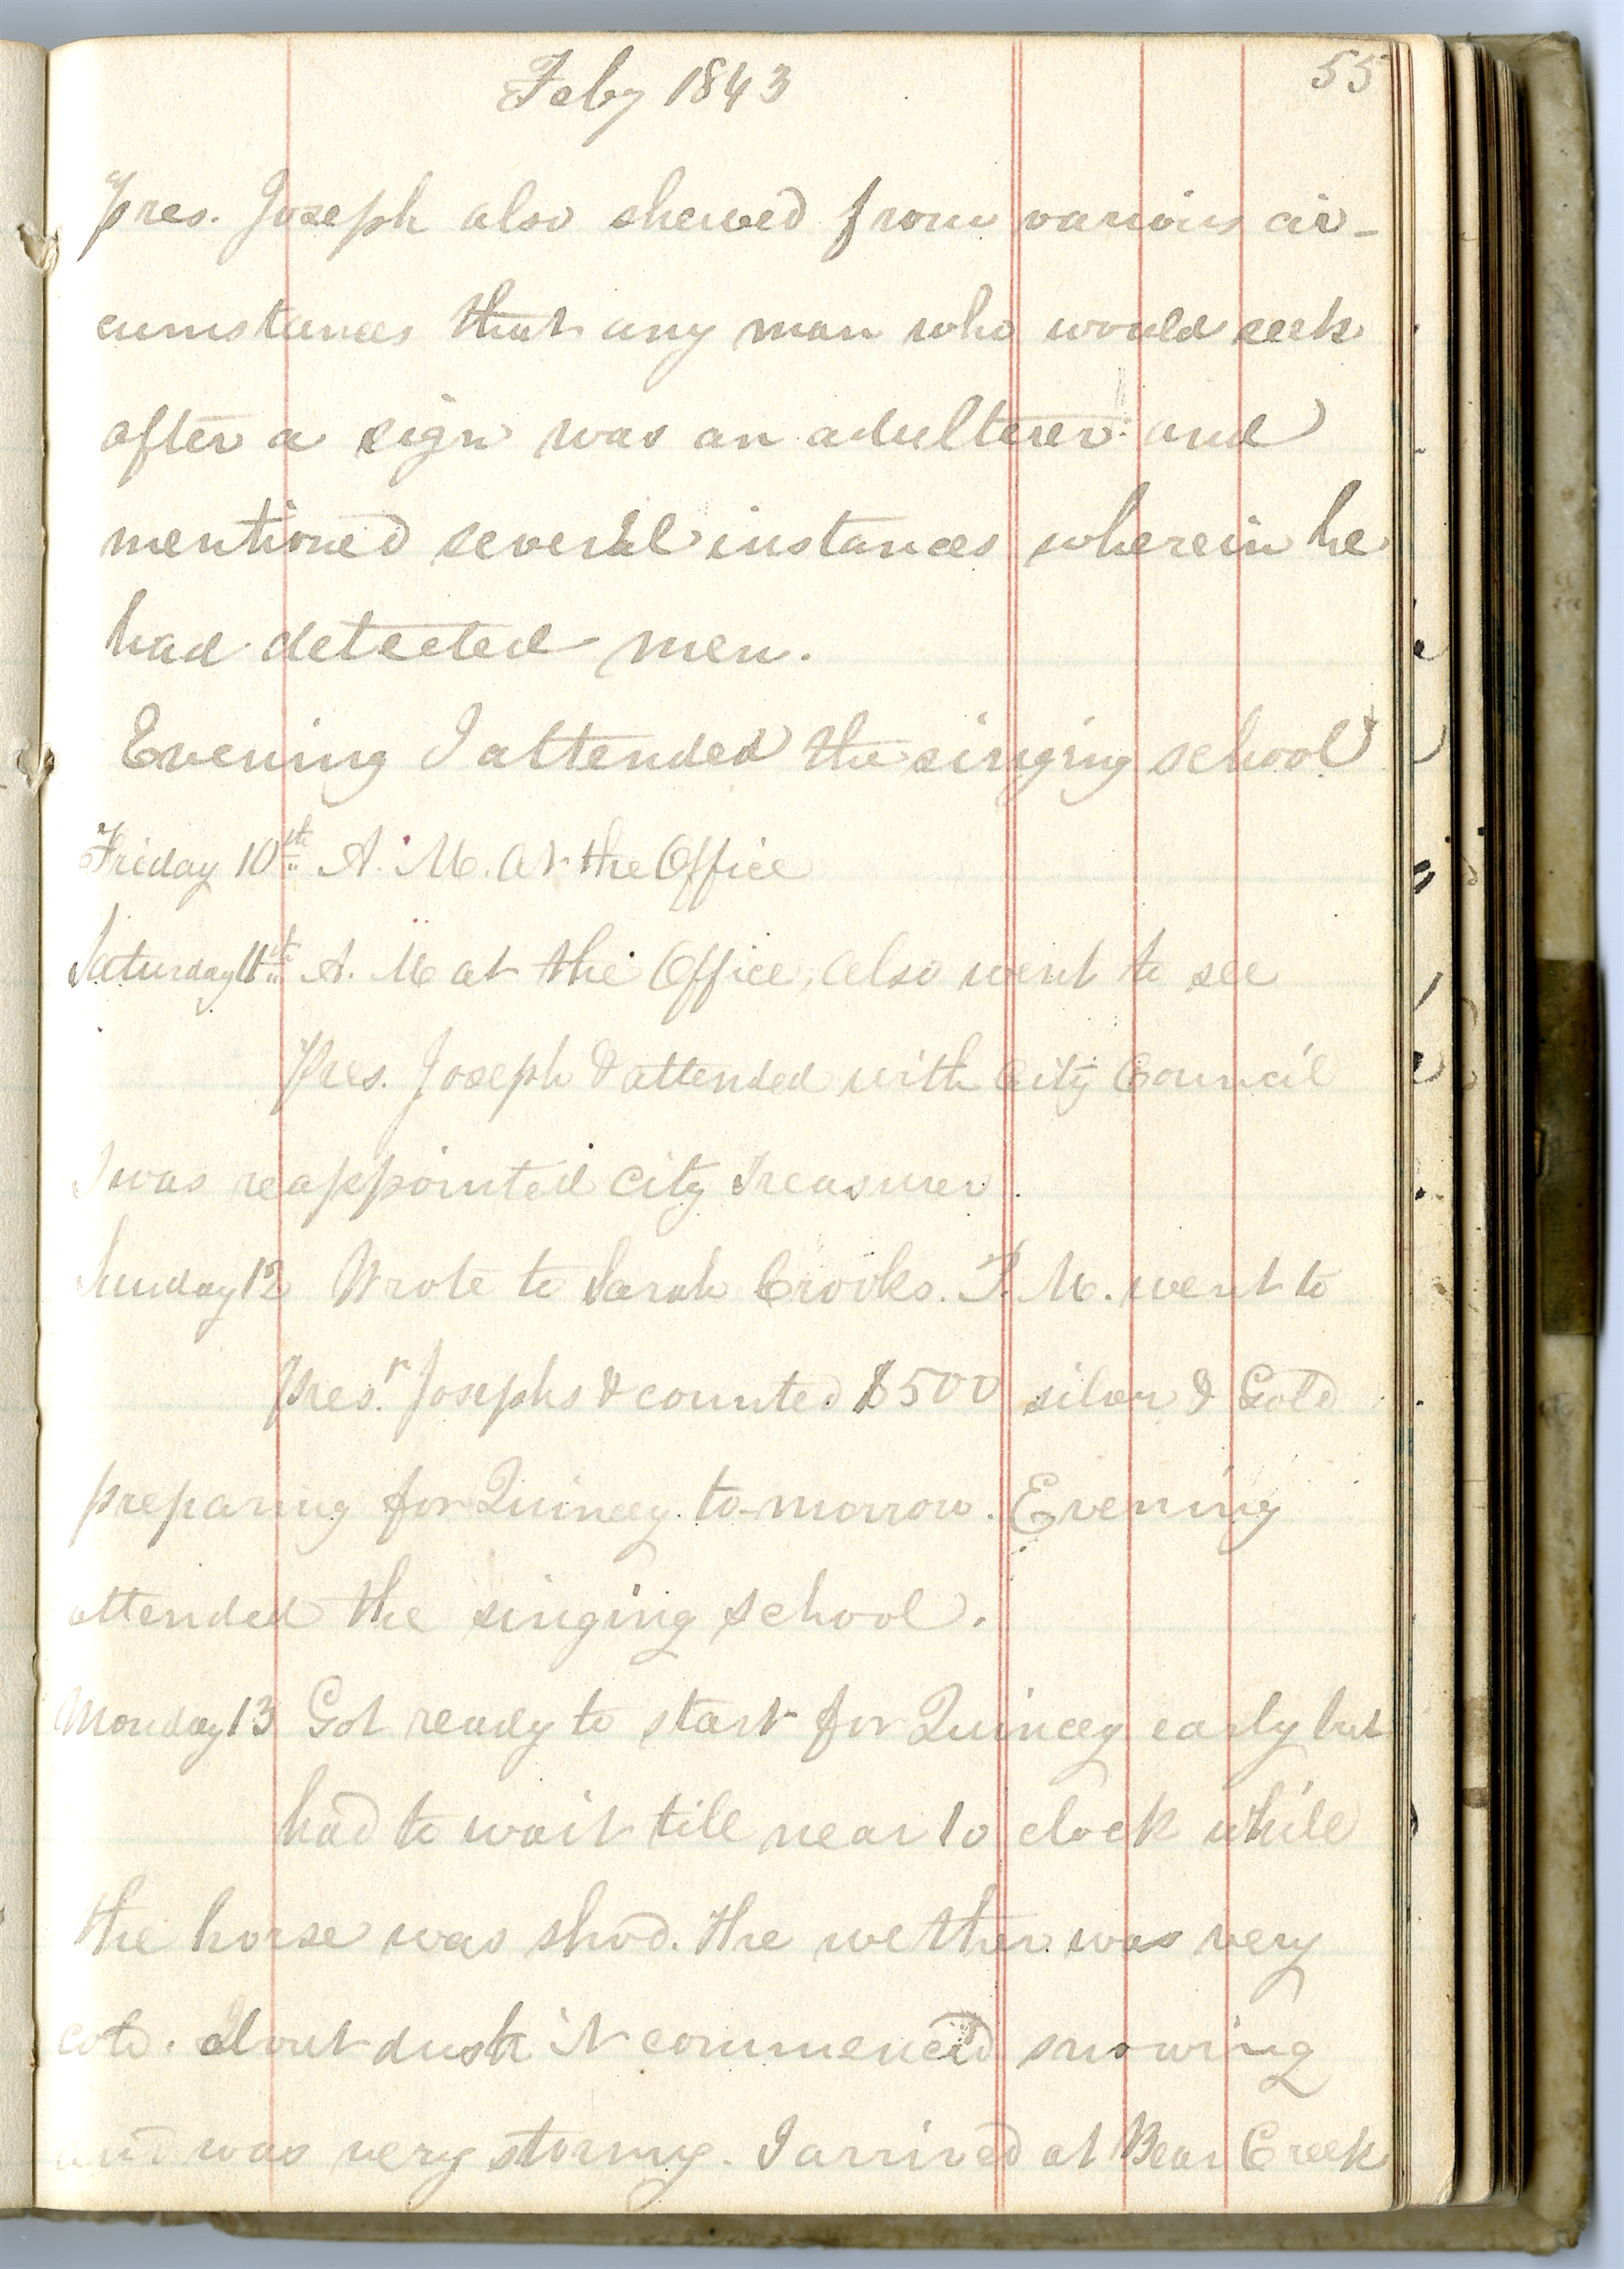 Feby 1843
55
Pres. Joseph also shewed from various cir-
cumstances that any man who would seek
after a sign was an adulterer and
mentioned several instances wherein he
had detected men.
Evening I attended the singing school
Friday 10th A. M. at the Office
Saturday 11th A. M at the Office, also went to see
Pres. Joseph & attended with City Council
I was reappointed City Treasurer.
Sunday 12 Wrote to Sarah Crooks. P. M. went to
Presr. Josephs & counted $500 silver & Gold
preparing for Quincy to-morrow. Evening
attended the singing school.
Monday 13 Got ready to start for Quincey early but
had to wait till near 10 clock while
the horse was shod. the wether was very
cold. About dusk it commenced snowing
and was very stormy. I arrived at Bear Creek